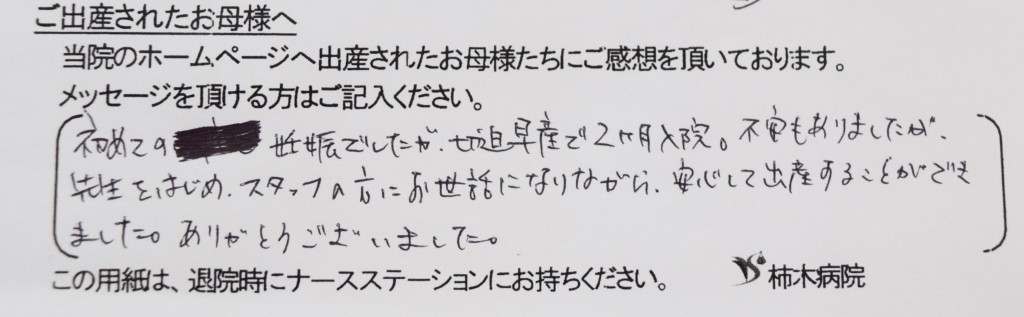 ご出産されたお母様へ
当院のホームページへ出産されたお母様たちにご感想を頂いております。
メッセージを頂ける方はご記入ください。
初めての 妊娠でしたが、切迫早産で2ヶ月入院。不安もありましたが、
先生をはじめ、スタッフの方にお世話になりながら、安心して出産することができ
ました。ありがとうございました。
この用紙は、退院時にナースステーションにお持ちください。
柿木病院